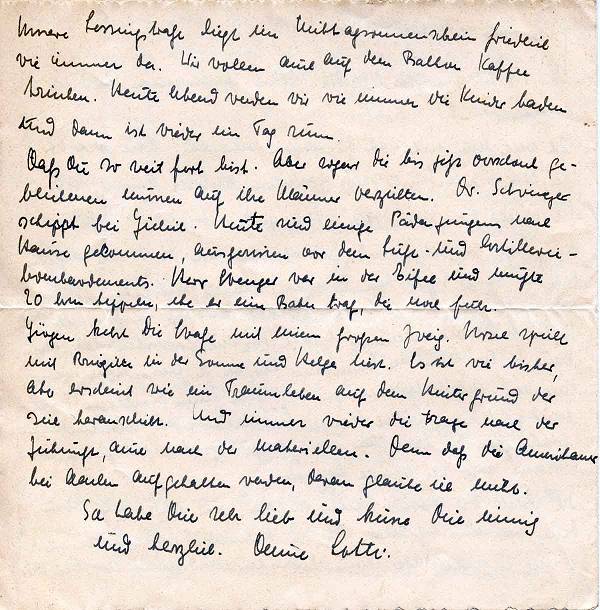 Unsere Lessingstraße liegt im Mittagssonnenschein friedlich
wie immer da. Wir wollen auch auf dem Balkon Kaffee
trinken. Heute Abend werden wir wie immer die Kinder baden
und dann ist wieder ein Tag rum.
Daß Du so weit fort bist. Aber sogar die bis jetzt verschont ge-
bliebenen müssen auf ihre Männer verzichten. Dr.
schippt bei Jülich. Heute sind einige Jungens nach
Hause gekommen, ausgerissen vor dem und Artillerie-
bombardements. Herr Wenger war in der Eifel und mußte
20 km tippeln, ehe er eine Bahn traf, die noch fuhr.
Jürgen kehrt die Straße mit einem großen Zweig. spielt
mit Brigitte in der Sonne und Helga liest. Es ist wie bisher,
aber erscheint wie ein Traumleben auf dem Hintergrund der
Zeit heraus. Und immer wieder die Frage nach der
Zukunft, auch nach der materiellen. Denn daß die Amerikaner
bei Aachen aufgehalten werden, daran glaube ich nicht.
Ich habe Dich sehr lieb und küsse Dich innig
und herzlich. Deine Lotti.